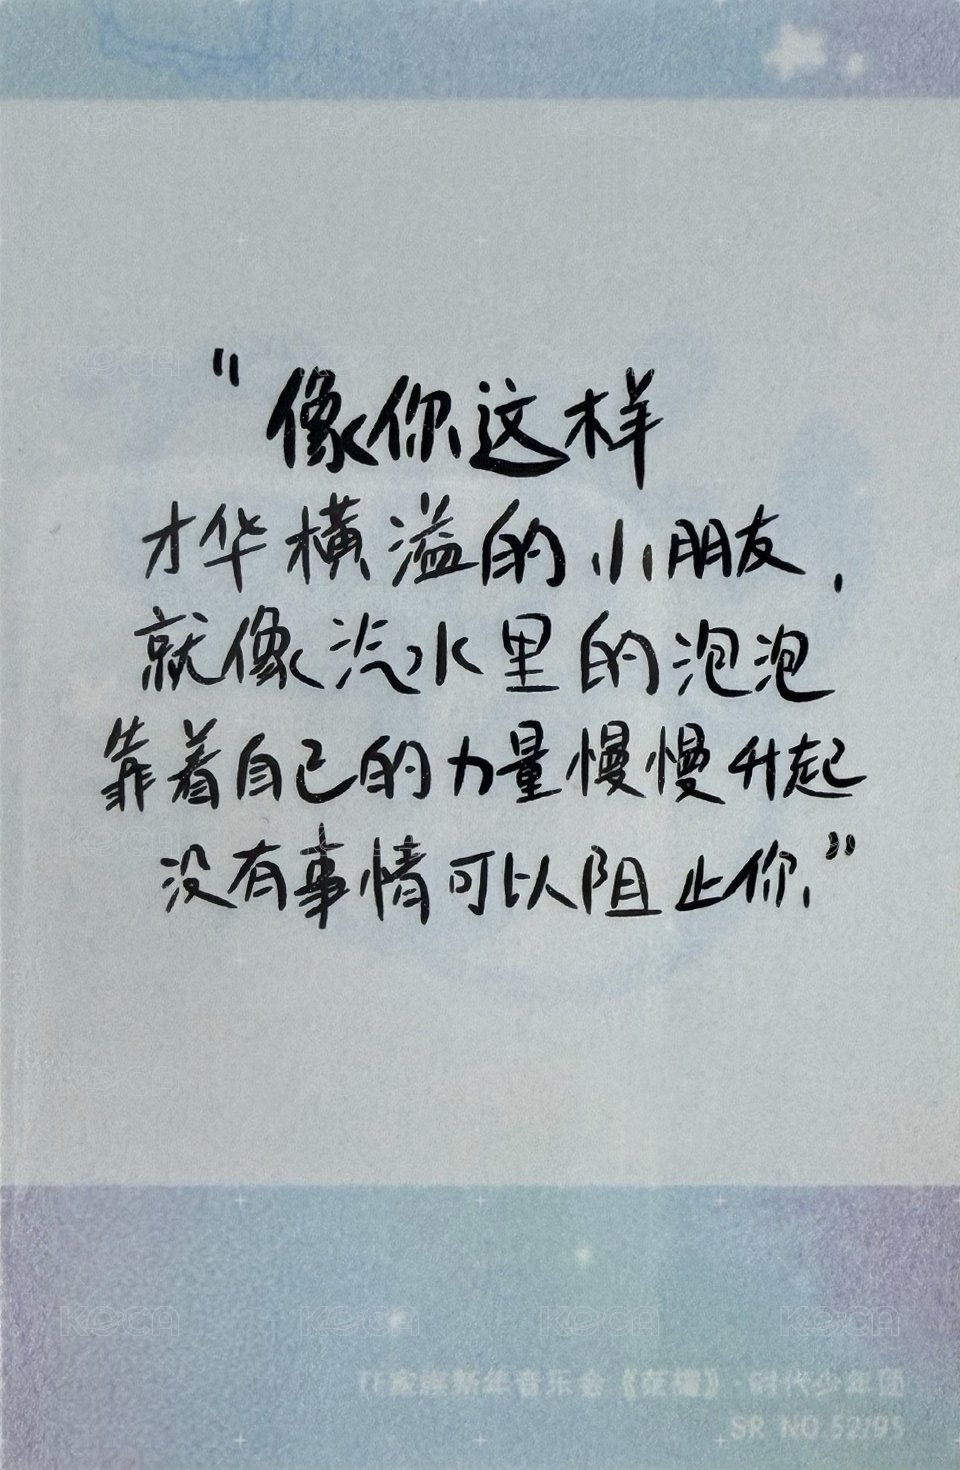 “像你这样
才华横溢的小朋友，
就像汽水里的泡泡
靠着自己的力量慢慢升起
没有事情可以阻止你”
TF家族新年音乐会《在曙》·时代少年团
SR NO.52/95
KOCA